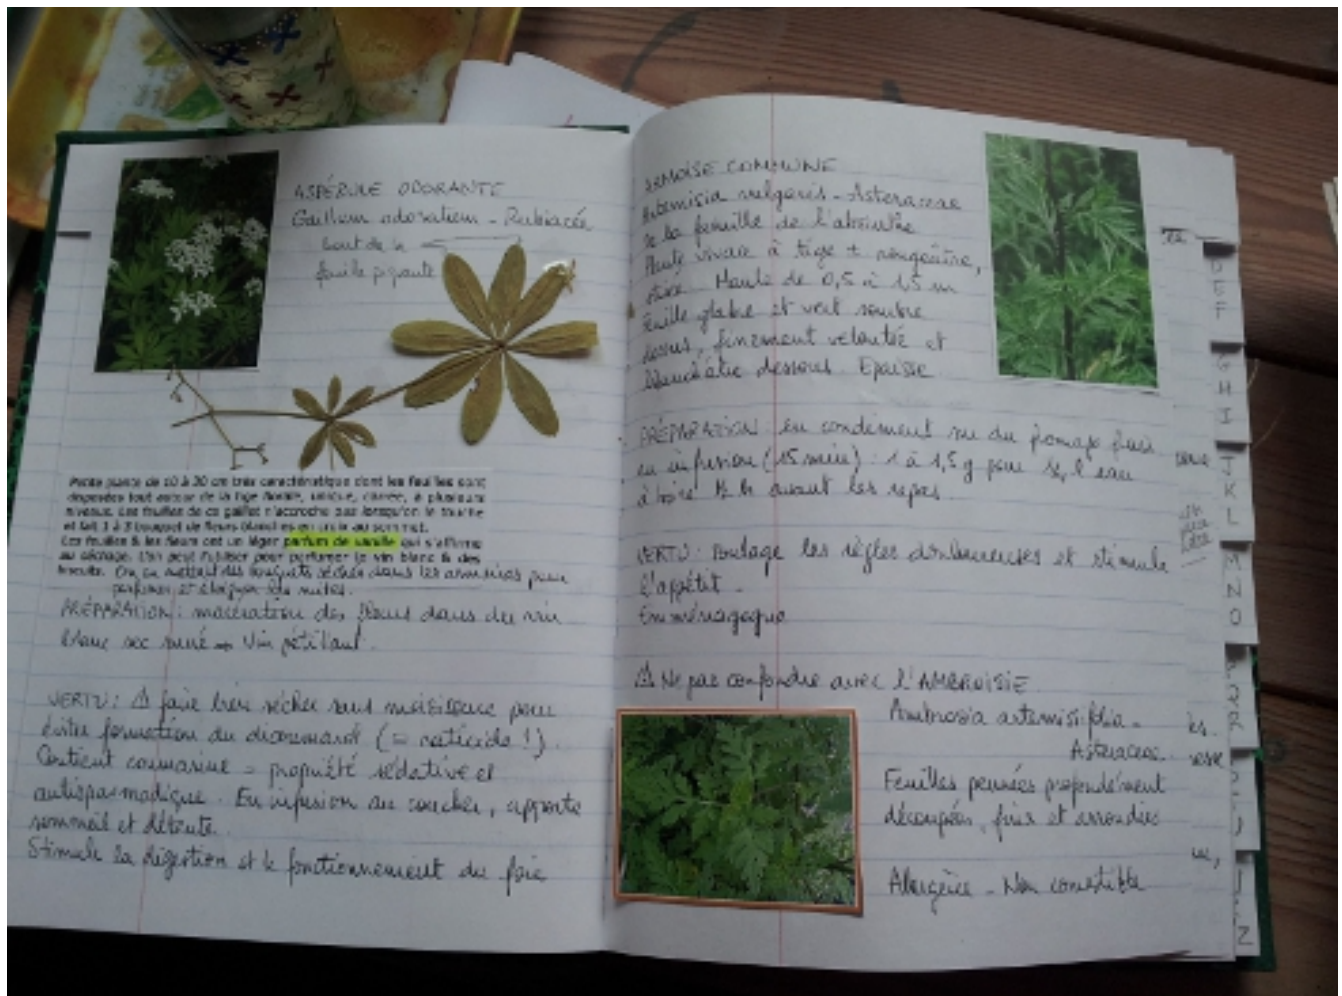 ASPÉRULE ODORANTE
Galium odoratum - Rubiacée
bout de la
feuille piquante
Petite plante de 10 à 30 cm très caractéristique dont les feuilles sont
disposées tout autour de la tige florale, unique, carrée, à plusieurs
niveaux. Les feuilles de ce gaillet n'accroche pas lorsqu'on le touche
et fait 1 à 3 bouquet de fleurs blanches en croix au sommet.
Les feuilles & les fleurs ont un léger parfum de vanille qui s'affirme
au séchage. L'on peut l'utiliser pour parfumer le vin blanc & des
biscuits. On en mettait des bouquets séchés dans les armoires pour
parfumer et éloigner les mites.
PRÉPARATION : macération des fleurs dans du vin
blanc sec sucré → Vin pétillant.
VERTU : ⚠ faire bien sécher sans moisissure pour
éviter formation du dicoumarol (= raticide !).
Contient coumarine = propriété sédative et
antispasmodique. En infusion au coucher, apporte
sommeil et détente.
Stimule la digestion et le fonctionnement du foie
ARMOISE COMMUNE
Artemisia vulgaris - Asteraceae
De la famille de l'absinthe
Plante vivace à tige ± rougeâtre,
striée. Haute de 0,5 à 1,5 m
Feuille glabre et vert sombre
dessus, finement veloutée et
blanchâtre dessous. Epaisse.
PRÉPARATION : en condiment sur du fromage frais
en infusion (15 min) : 1 à 1,5 g pour l'eau
à boire avant les repas.
VERTU : soulage les règles douloureuses et stimule
l'appétit.
Emménagogue
⚠ Ne pas confondre avec l'AMBROISIE
Ambrosia artemisiifolia -
Asteraceae.
Feuilles pennées profondément
découpées, fines et arrondies
Allergène - Non comestible
D
E
F
G
H
I
J
K
L
M
N
O
P
Q
R
Z